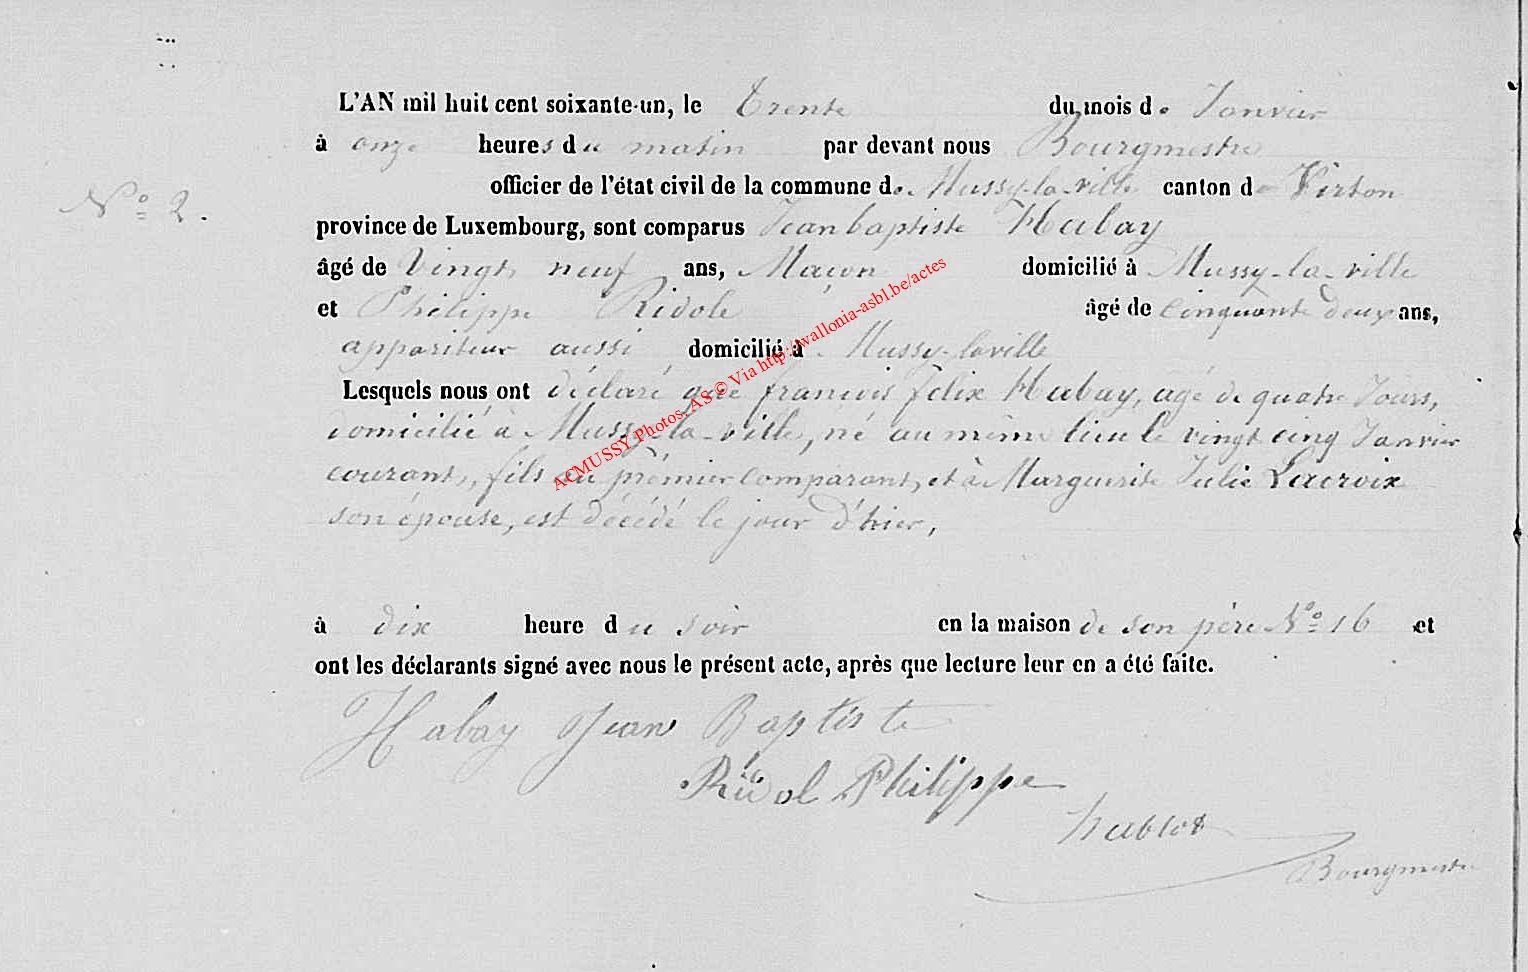 L'AN mil huit cent soixante-un, le Trente du mois de Janvier
à onze heures du matin par devant nous Bourgmestre
officier de l'état civil de la commune de Mussy-la-ville canton de Virton
N° 2.
province de Luxembourg, sont comparus Jean baptiste Habay
âgé de Vingt neuf ans, Maçon domicilié à Mussy-la-ville
et Philippe Ridole âgé de cinquante deux ans,
appariteur aussi domicilié à Mussy-laville
Lesquels nous ont déclaré que francois felix Habay, agé de quatre Jours,
domicilié à Mussy-la-ville, né au même lieu le vingt cinq Janvier
courant, fils du prémier comparant, et à Marguerite Julie Lacroix
son épouse, est décédé le jour d'hier,
à dix heure du soir en la maison de son père N° 16 et
ont les déclarants signé avec nous le présent acte, après que lecture leur en a été faite.
Habay Jean Baptiste
Ridol Philippe
hublot
Bourgmestre
ACMUSSY Photos: AS © Via http://wallonia-asbl.be/actes